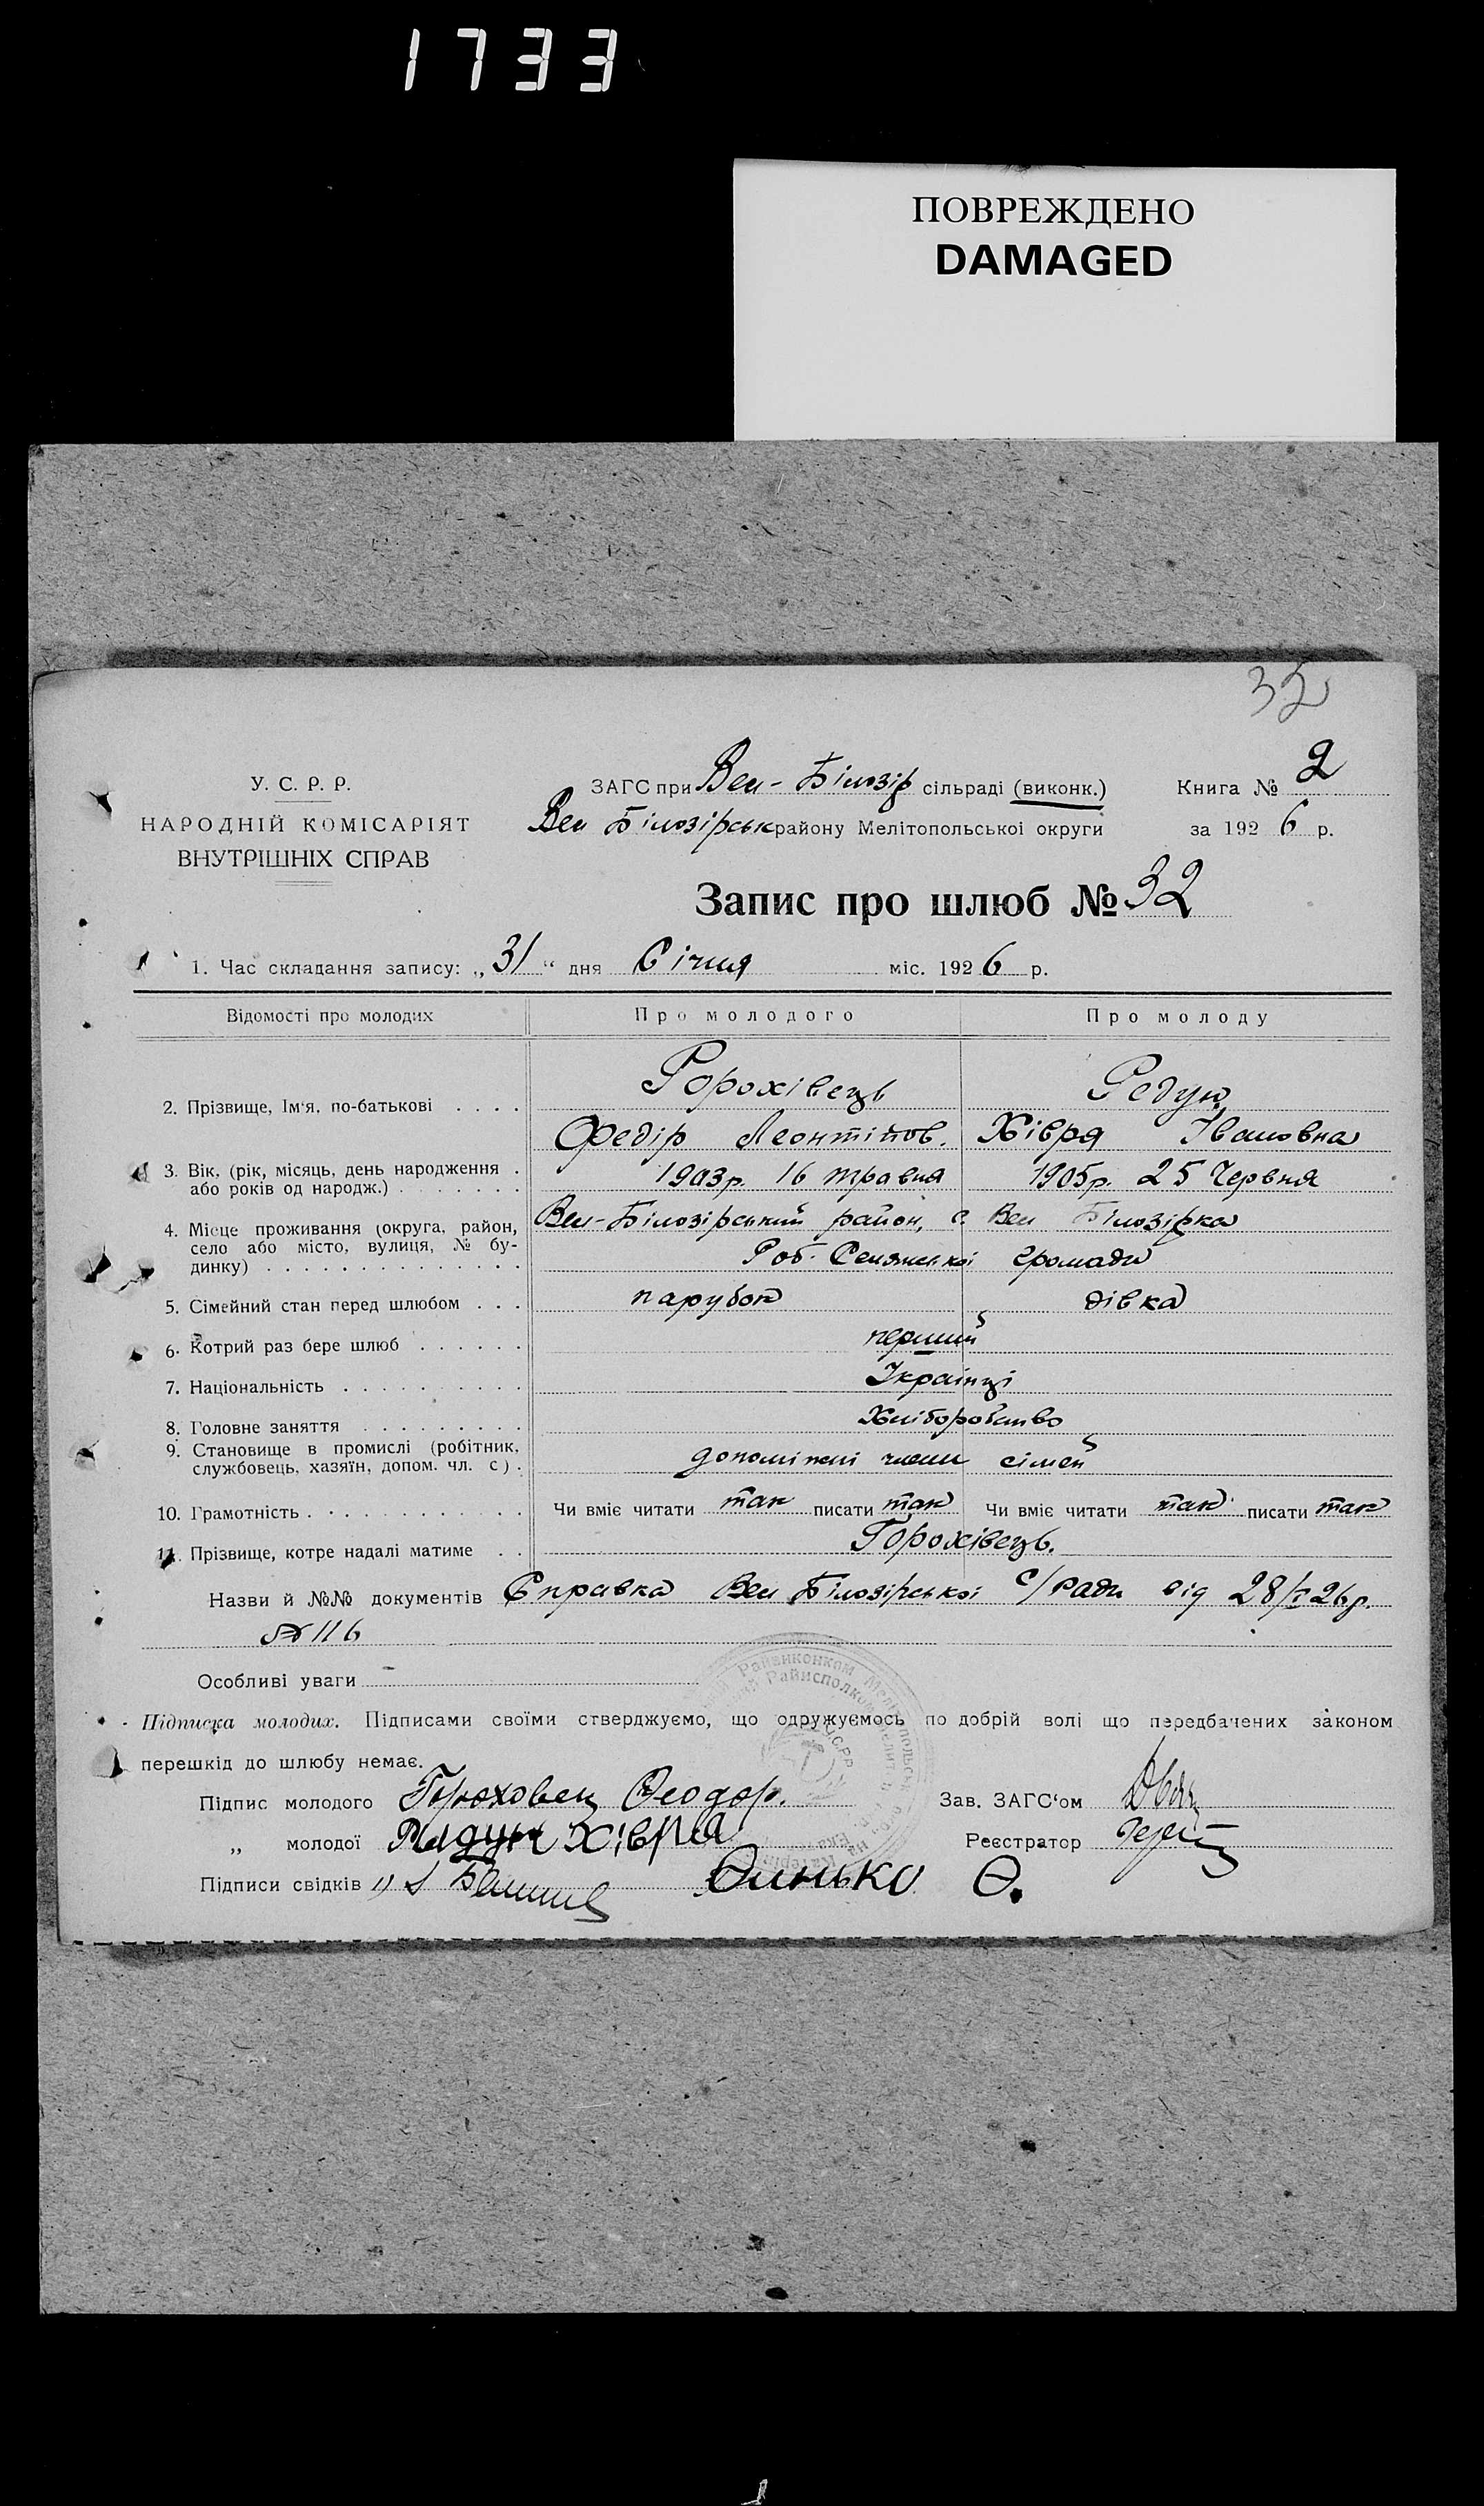 1733
ПОВРЕЖДЕНО
DAMAGED
32
У. С. Р. Р.
НАРОДНІЙ КОМІСАРІЯТ
ВНУТРІШНІХ СПРАВ
ЗАГС при Вел-Білозір сільраді (виконк.)
Вел Білозірськ району Мелітопольської округи
Книга № 2
за 1926 р.
Запис про шлюб № 32
1. Час складання запису: „31“ дня Січня міс. 1926 р.
Відомості про молодих Про молодого Про молоду
2. Прізвище, Ім'я, по-батькові . . . . Горохівець Редун
Федір Леонтіпов. Хівря Івановна
3. Вік, (рік, місяць, день народження . або років од народж.) . . . . . . . 1903р. 16 травня 1905р. 25 Червня
4. Місце проживання (округа, район, село або місто, вулиця, № будинку) . . . . . . . . . . . . . . Вел-Білозірський район, с. Вел Білозірка
Роб. Селянської громади
5. Сімейний стан перед шлюбом . . . парубок дівка
6. Котрий раз бере шлюб . . . . . . перший
7. Національність . . . . . . . . . . Українці
8. Головне заняття . . . . . . . . . Хліборобство
9. Становище в промислі (робітник, службовець, хазяїн, допом. чл. с) . допоміжні члени сімей
10. Грамотність . . . . . . . . . . . Чи вміє читати так писати так Чи вміє читати так писати так
11. Прізвище, котре надалі матиме . . Горохівець.
Назви й №№ документів Справка Вел Білозірської с/ради від 28/I 26р.
№ 116
Особливі уваги
Підписка молодих. Підписами своїми стверджуємо, що одружуємось по добрій волі що передбачених законом
перешкід до шлюбу немає.
Підпис молодого Гороховец Феодор. Зав. ЗАГС'ом
„ молодої Радун Хівря Реєстратор
Підписи свідків 1) Олинько Ѳ.